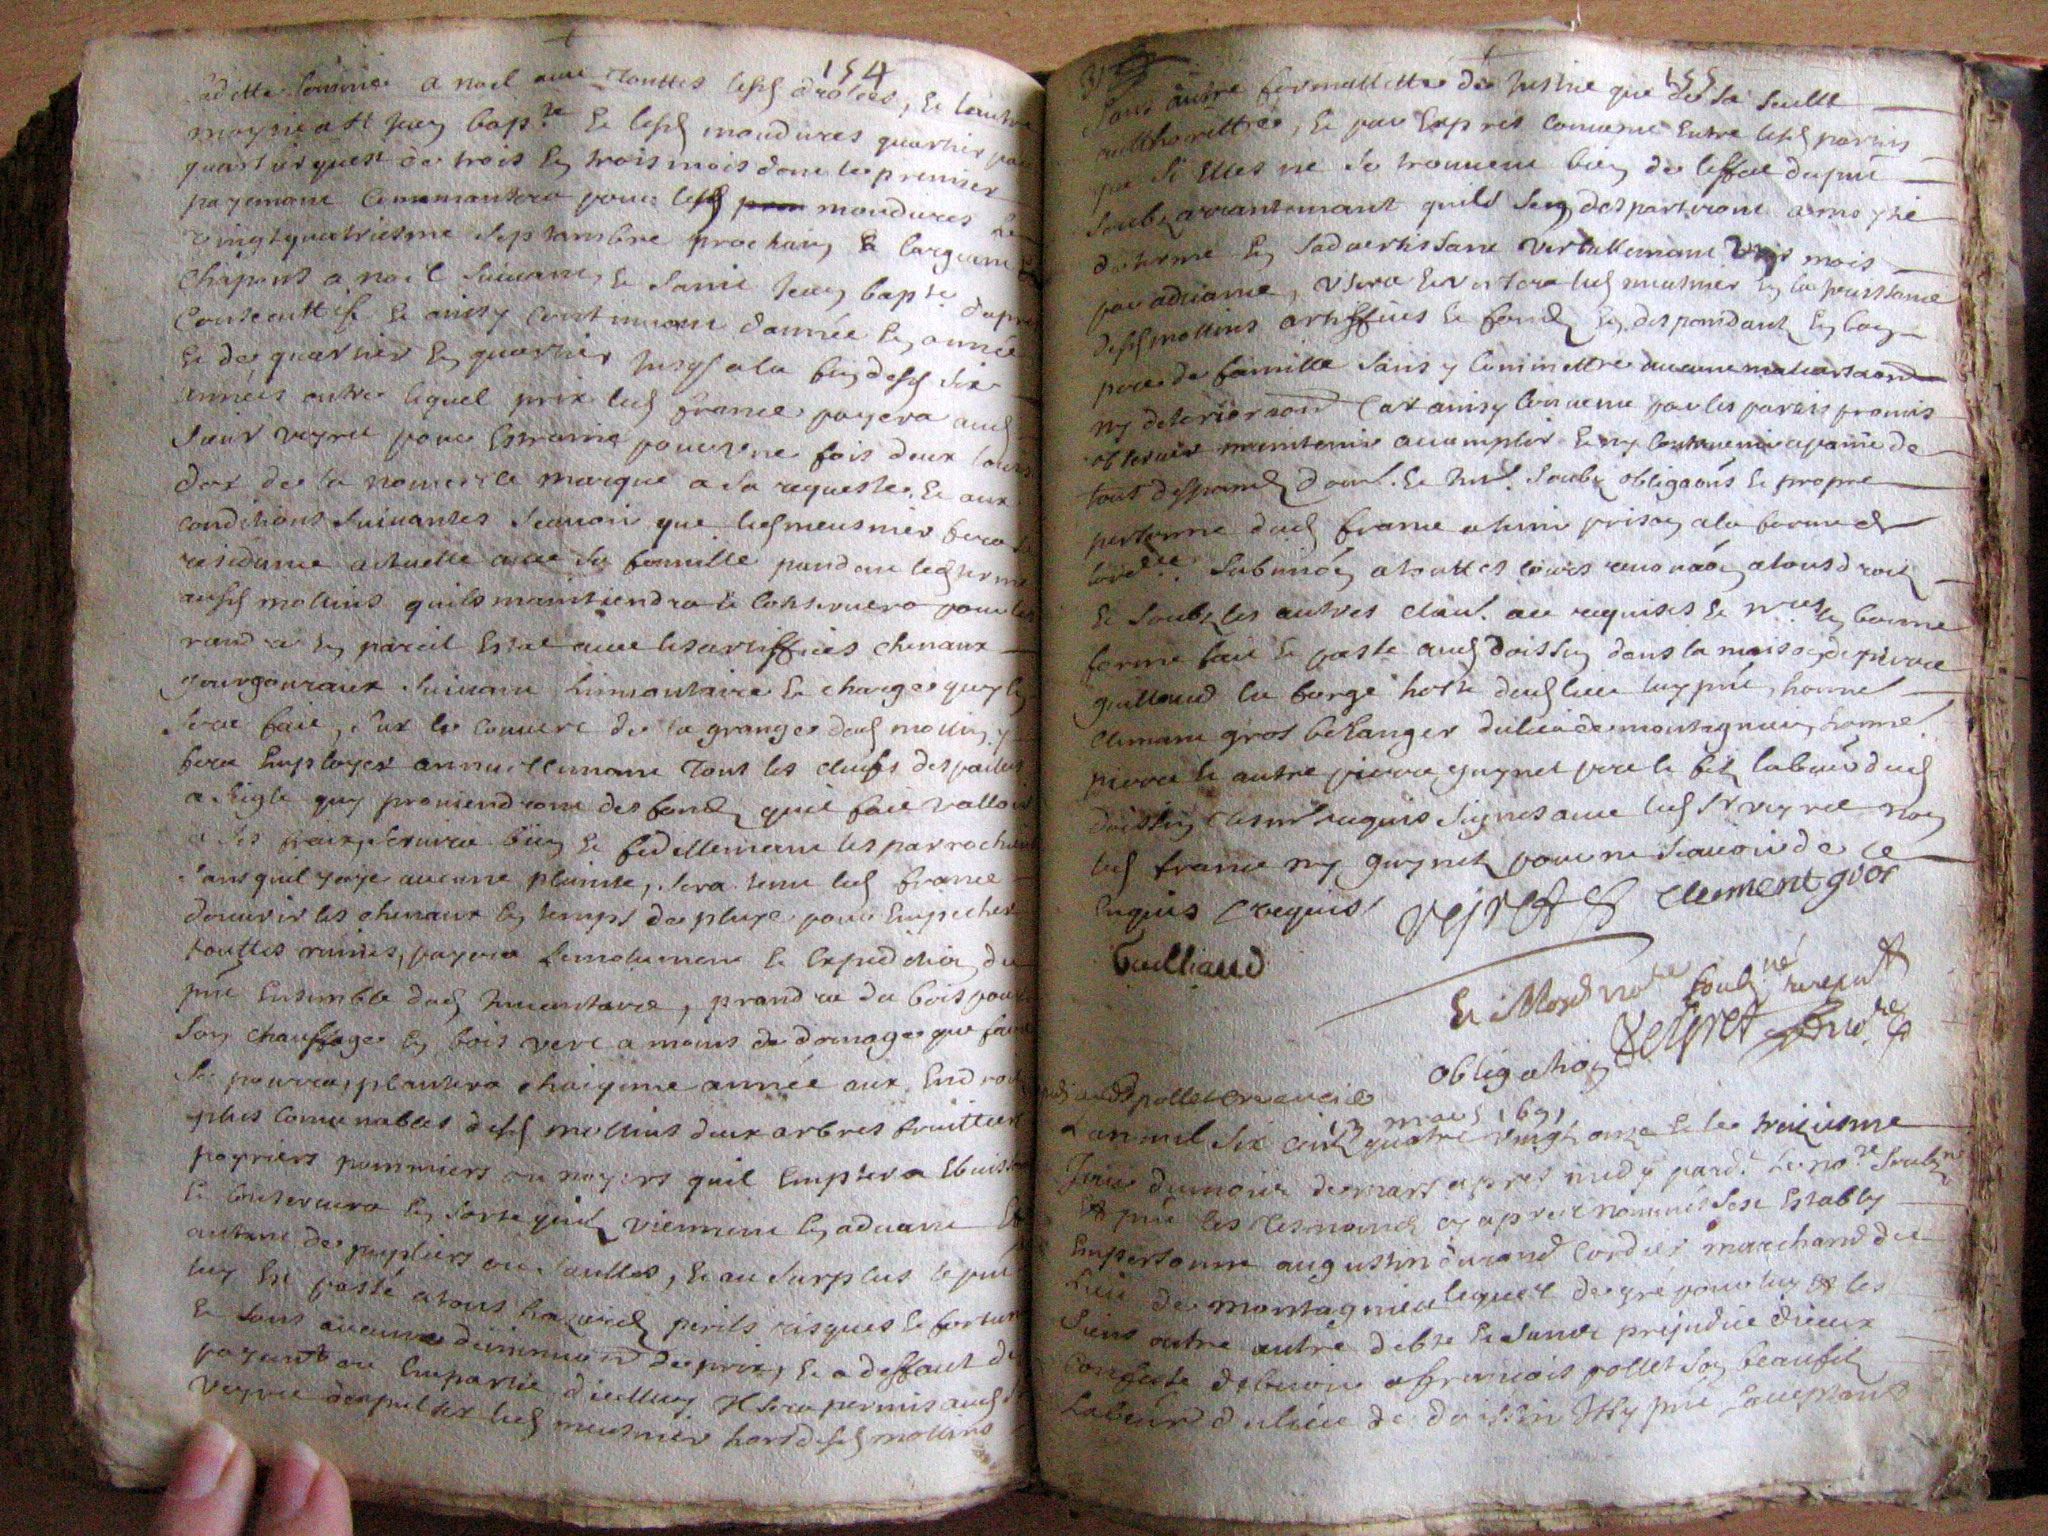 154
laditte somme a noel avec touttes lesd droictes, et lautre
moytie a st Jean bapte et lesd moudures quartier par
quartier quest de trois en trois mois dont le premier
payement commansera pour lesd moudures le
vingtquatriesme septambre prochain, et largent et
chapons a noel suivant, et saint Jean bapte dapres
consecuttif et ainsy continuant dannée en année
et de quartier en quartier jusqs a la fin desd six
années outre lequel prix led france payera aud
sieur veyret pour estraine pour une fois deux louis
dor de la nouvelle marque a sa requeste, et aux
conditions suivantes scavoir que led meusnier fera sa
residance actuelle avec sa famille pandant led terme
ausd mollins quils maintiendra et conservera pour les
randre en pareil estat avec les artiffices chenaux
gourgouraux suivant linvantaire et charge quy en
sera fait, sur le couvert de la grange dud mollin y
fera employer annuellemant tous les cluifs des pailles
a seigle quy proviendront des fonds quil fait valloir
a ses fraix, servira bien et fidellemant les parrochiens
sans quil y aye aucunne plainte, sera tenu led france
douvrir les chenaux en temps de pluye pour empecher
touttes ruines, payera lemolument et expedition du
pnt ensemble dud Invantaire, prandre du bois pour
son chauffage en bois vert a moins de domage que faire
se pourra, plantera chaiqune année aux endroits
plus convenables desd mollins deux arbres fruittiers
poyriers pommiers ou noyers quil emptera ebuissonera
et conservera en sorte quils viennent en advant et
autant de pupliers ou saulles, et au surplus le pnt
luy est passé a tous hazards perils risques et fortune
et sans aucune diminuon de prix, et a deffaut de
payement ou en partie dicelluy Il sera permis aud sr
veyret dexpulser led meusnier hors desd mollins
155
sans autre formallitté de Justice que de sa seulle
authorritté, et par expres convenu entre lesd parties
que si elles ne se trouvent bien de leffet du pnt
soubz arrantemant quils sen despartiront a moytié
du terme en sadvertissant verballemant trois mois
par advance, usera et vertera led meusnier en la jouissance
desd mollins artiffices et fonds en despandant en bon
pere de famille sans y commettre aucune malversaon
ny deterioraon Car ainsy convenu par les parties promis
observer maintenir accomplir et ny contrevenir a paine de
tous despands dom. et Int. soubz obligaons et propre
personne dud france a tenir prison a la forme de
lord.ce submion a touttes cours renonaon a tous droits
et soubz les autres claul. au requises et nres en bonne
forme fait et passé aud doissin dans la maison de pierre
guilliaud la barge hoste dud lieu luy pnt, honnel
clemant gros bellanger du lieu de montagnieu, honnel
pierre et autre pierre guynet pere et fils labour dud
doissin tesm requis signes avec led sr veyret non
led france ny guynet pour ne scavoir de ce
enquis et requis
veyret
clement gros
Guilliaud
Et Moy nore soubné recepvt
Veyret nore
obligation
pollet
13 mars 1691
Lan mil six cents quatre vingt onze et le treiziesme
Jour du mois de mars apres midy pard. le nore soubzné
Et pnt les tesmoins cy apres nommés sest estably
en personne augustin durand cordier marchand du
lieu de montagnieu lequel de gré pour luy et les
siens outre autre debte et sans prejudice diceux
confesse debvoir a francois pollet son beaufils
labour du lieu de doissin Icy pnt acceptant